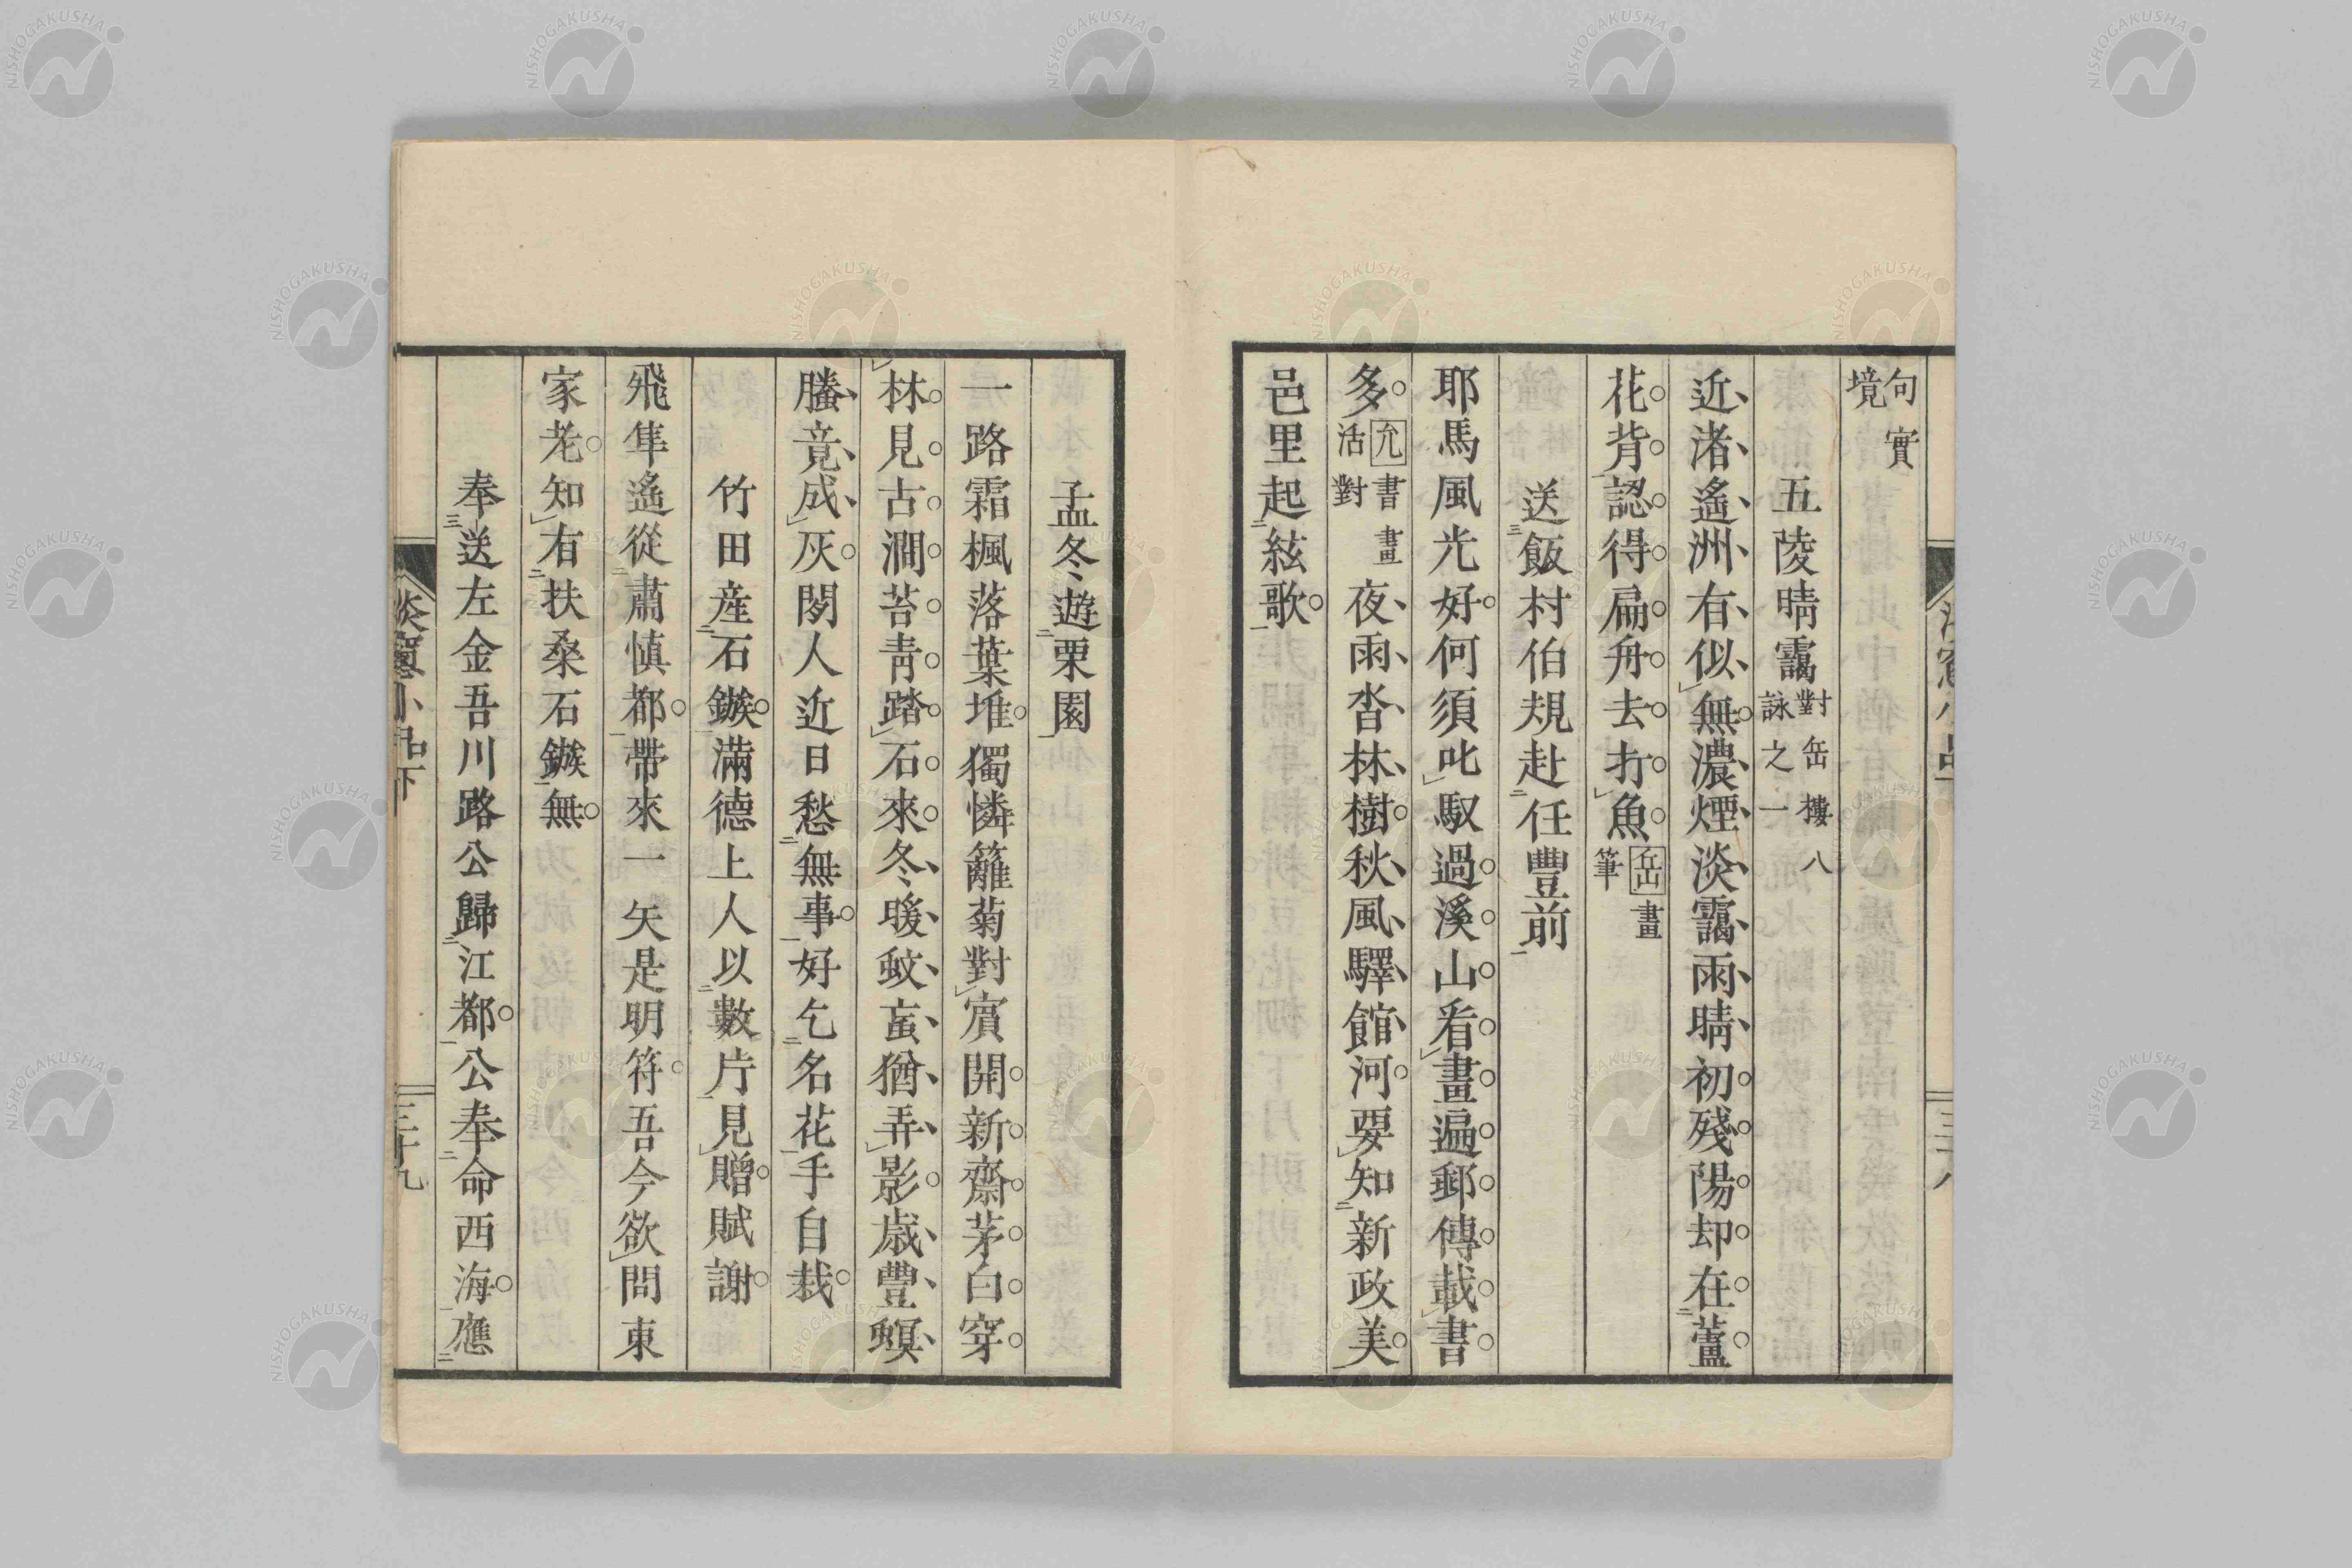 句實
境
五陵晴靄對岳樓八詠之一
近渚遙洲有似無濃煙淡靄雨晴初殘陽却在蘆
花背認得扁舟去打魚岳畫筆
送飯村伯規赴任豐前
耶馬風光好何須叱馭過溪山看畫遍郵傳載書
多允書畫活對夜雨沓林樹秋風驛館河要知新政美
邑里起絃歌
孟冬遊栗園
一路霜楓落葉堆獨憐籬菊對賓開新齋茅白穿
林見古澗苔青踏石來冬暖蚊䖟猶弄影歲豐螟
螣竟成灰閱人近日愁無事好乞名花手自栽
竹田産石鏃滿德上人以數片見贈賦謝
飛隼遙從肅慎都帶來一矢是明符吾今欲問東
家老知有扶桑石鏃無
奉送左金吾川路公歸江都公奉命西海應
淡窻小品下
三十九
三十八
NISHOGAKUSHA